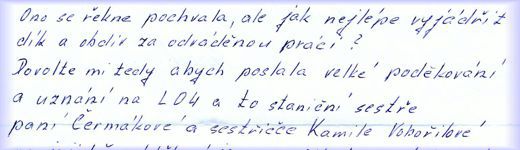 Ono se řekne pochvala, ale jak nejlépe vyjádřit
dík a obdiv za odváděnou práci?
Dovolte mi tedy abych poslala velké poděkování
a uznání na LO4 a to staniční sestře
paní Čermákové a sestřičce Kamile Vohořilové